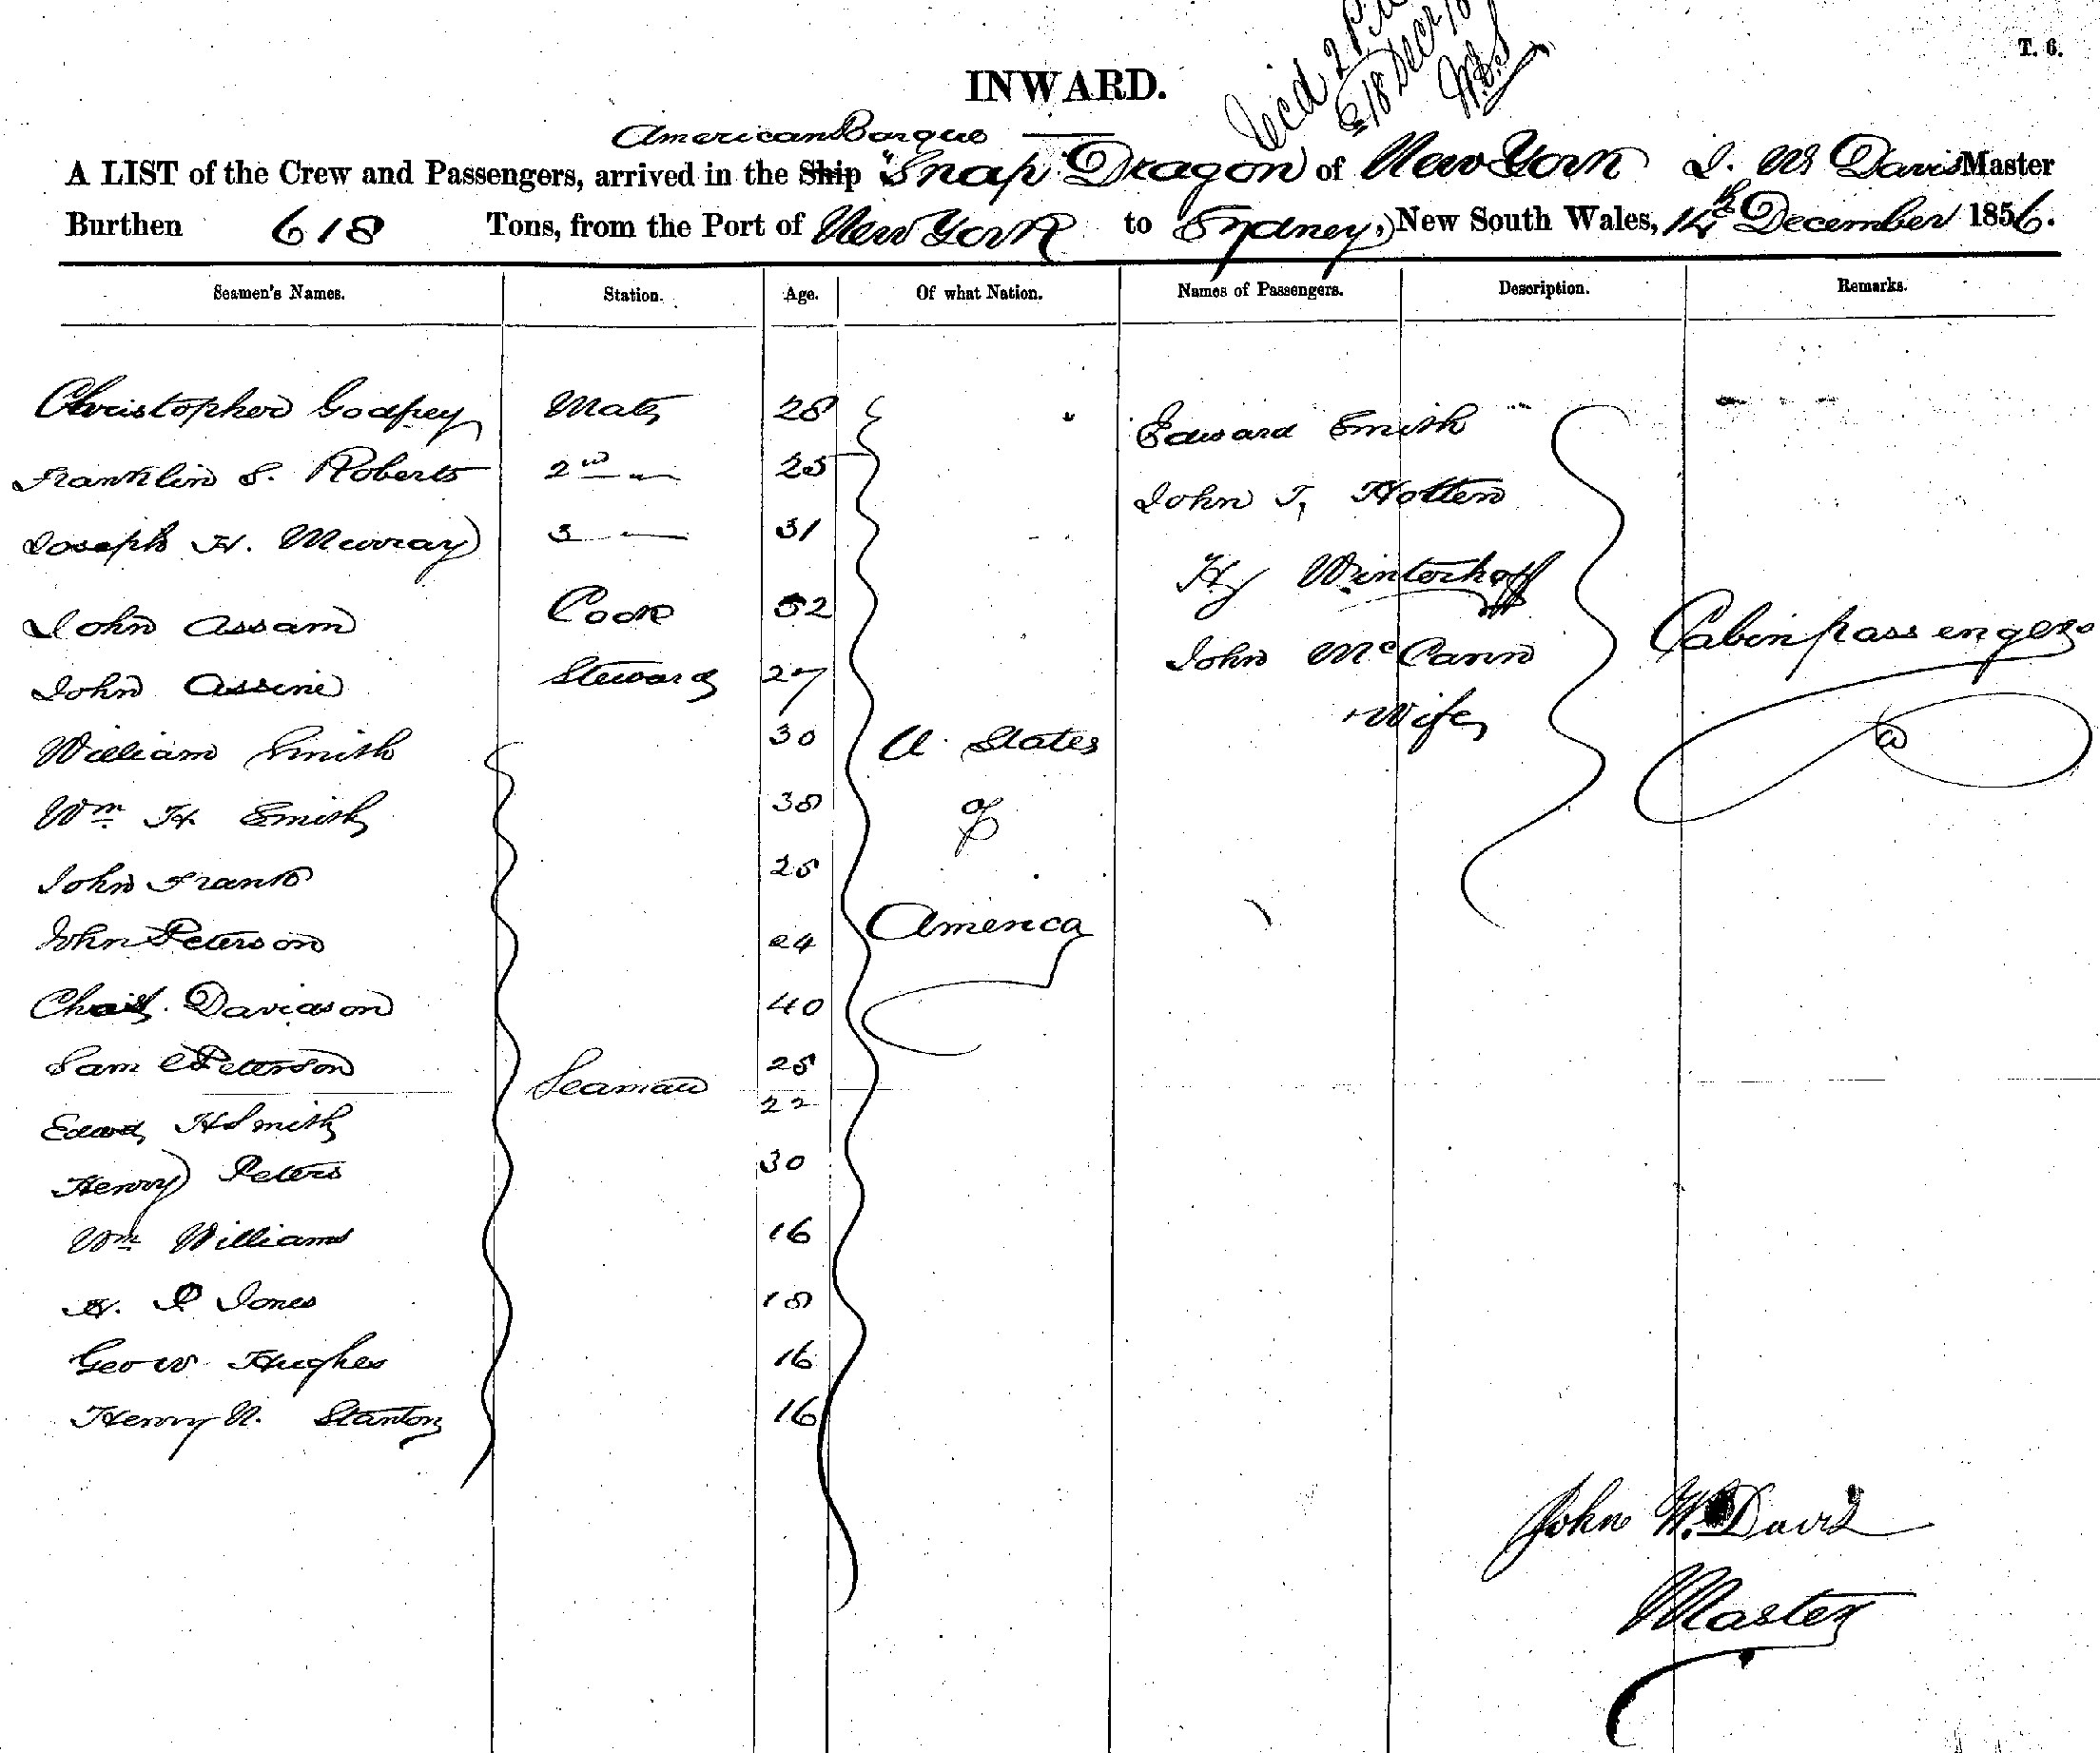 T. 6.
Rec'd 2 P.M.
18 Decr
INWARD.
American Barque
A LIST of the Crew and Passengers, arrived in the Ship "Snap Dragon of New York J. W Davis Master
Burthen 618 Tons, from the Port of New York to Sydney, New South Wales, 14th December 1856.
Seamen's Names. Station. Age. Of what Nation. Names of Passengers. Description. Remarks.
Christopher Godfrey Mate 28 Edward Smith
Franklin S. Roberts 2nd " 25 John T, Hotten
Joseph H. Murray 3 " 31 Hy Winterhoff
John Assam Cook 52 John McCann Cabin passengers
John Assine Steward 27 + Wife
William Smith 30 U. States
Wm H. Smith 38 of
John Frank 25
John Peterson 24 America
Davidson 40
Sam Peterson 25
Seaman
Edwd H Smith 22
Henry Peters 30
Wm Williams 16
H. P Jones 18
Geo W Hughes 16
Henry N. Stanton 16
John W. Davis
Master